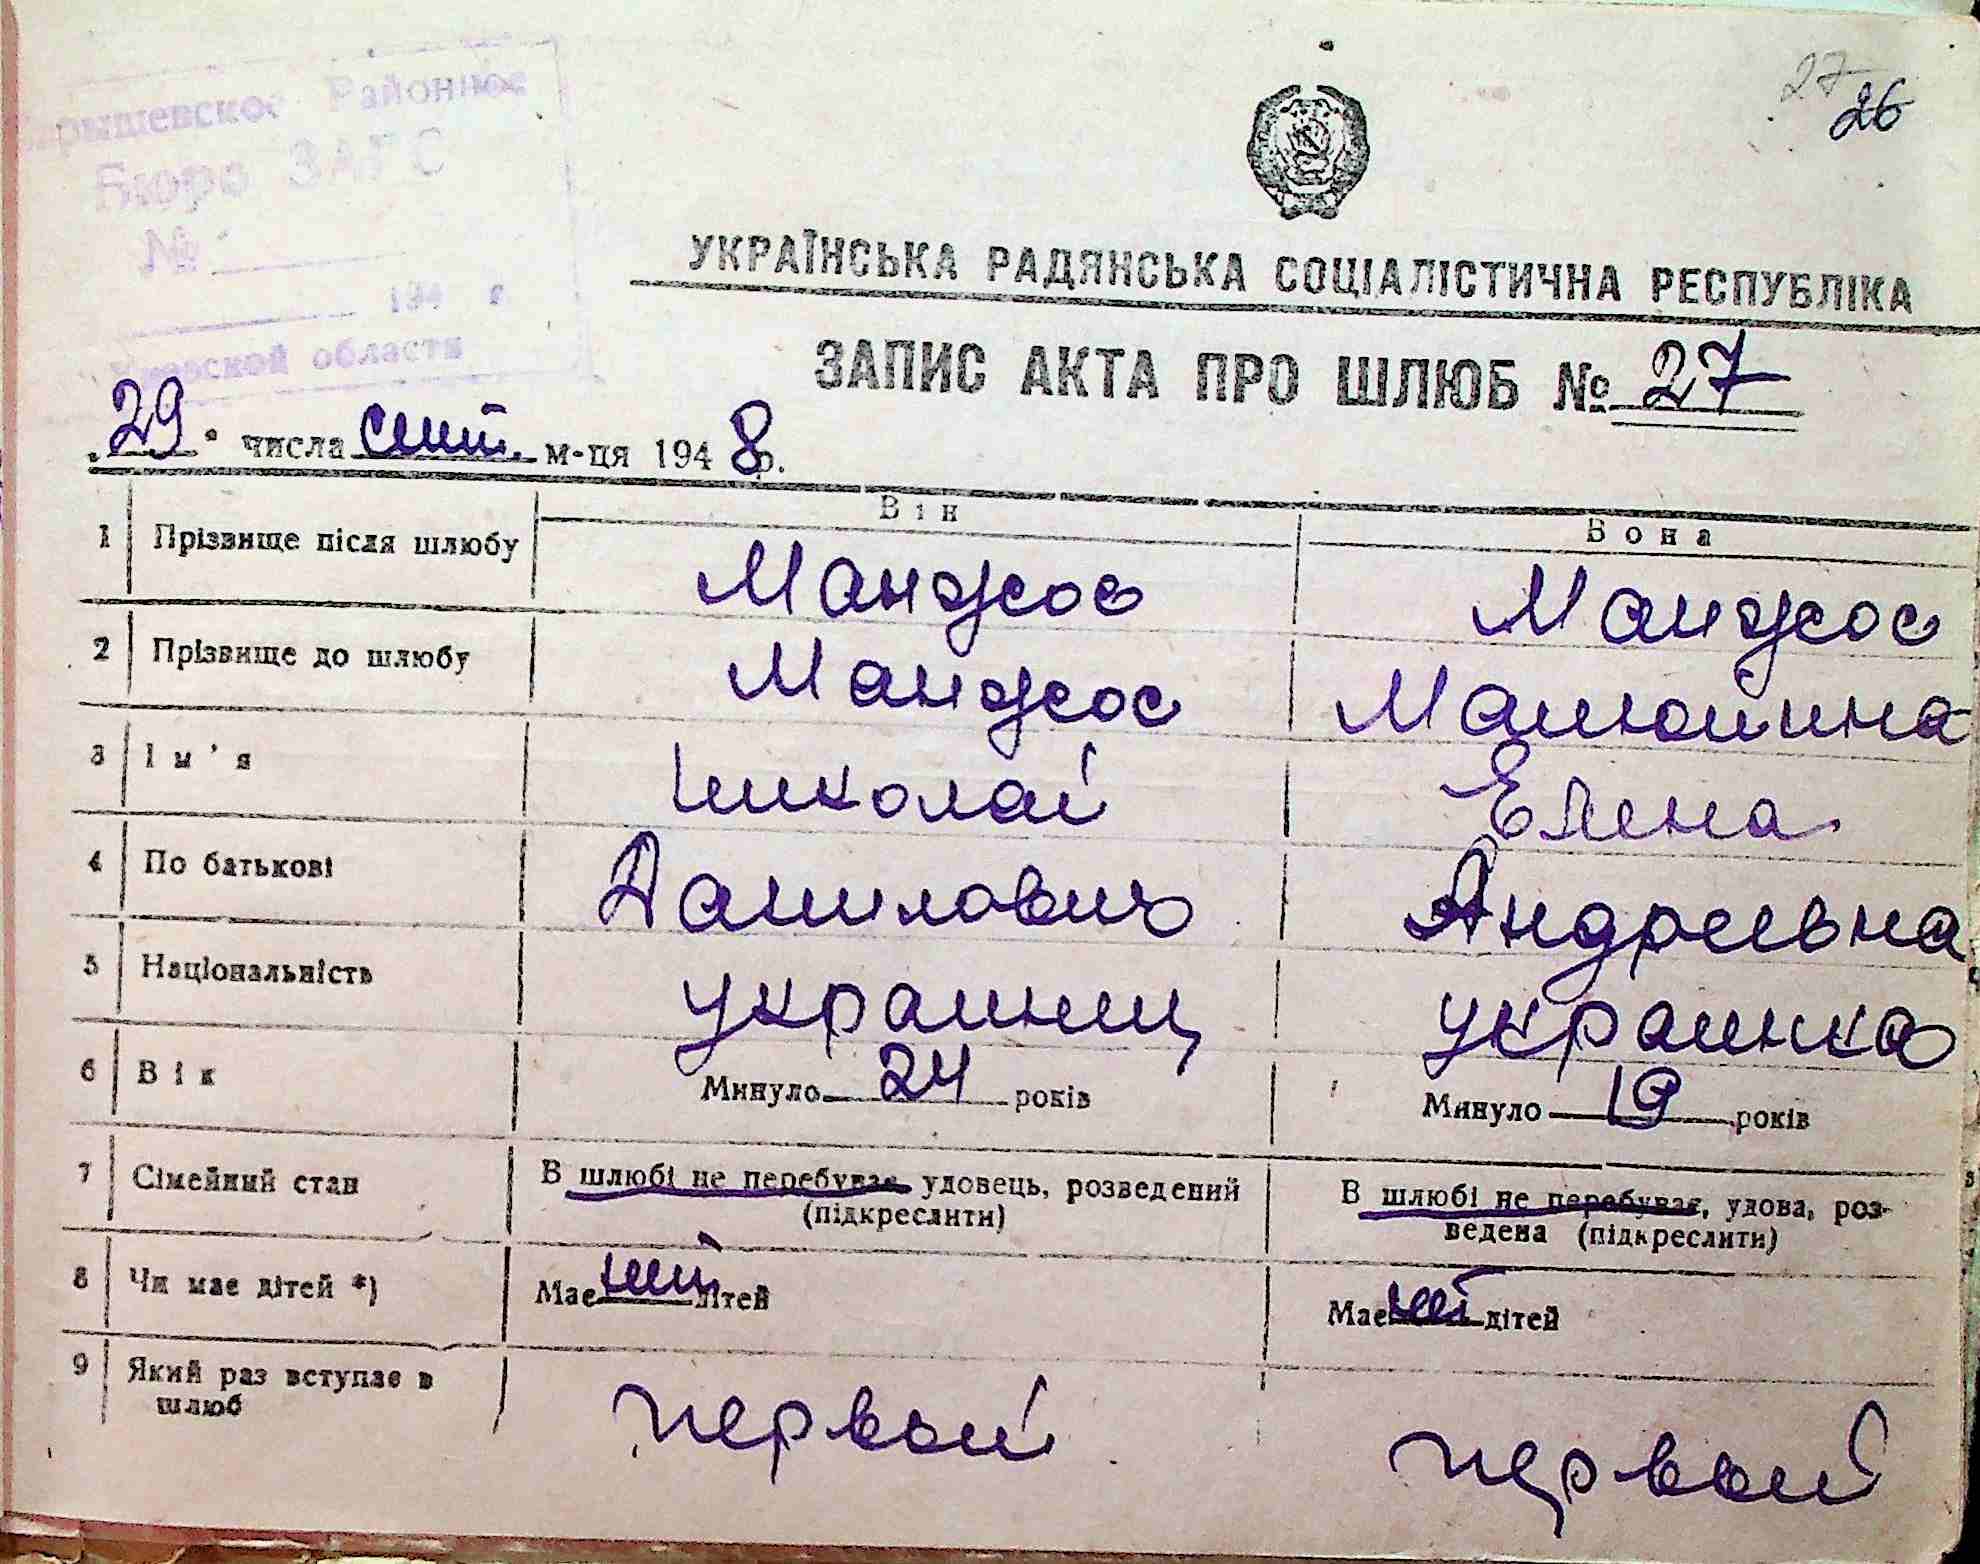 27
26
рышевское Районное
Бюро ЗАГС
№
194 г
Киевской области
УКРАЇНСЬКА РАДЯНСЬКА СОЦІАЛІСТИЧНА РЕСПУБЛІКА
ЗАПИС АКТА ПРО ШЛЮБ № 27
29 числа сент. м-ця 1948 р.
Він Вона
1 Прізвище після шлюбу Манжос Манжос
2 Прізвище до шлюбу Манжос
3 Ім'я Николай Елена
4 По батькові Данилович Андреевна
5 Національність украинец украинка
6 Вік Минуло 24 років Минуло 19 років
7 Сімейний стан В шлюбі не перебував, удовець, розведений В шлюбі не перебувая, удова, роз-
(підкреслити) ведена (підкреслити)
8 Чи має дітей *) Має нет дітей Має нет дітей
9 Який раз вступає в первый первый
шлюб